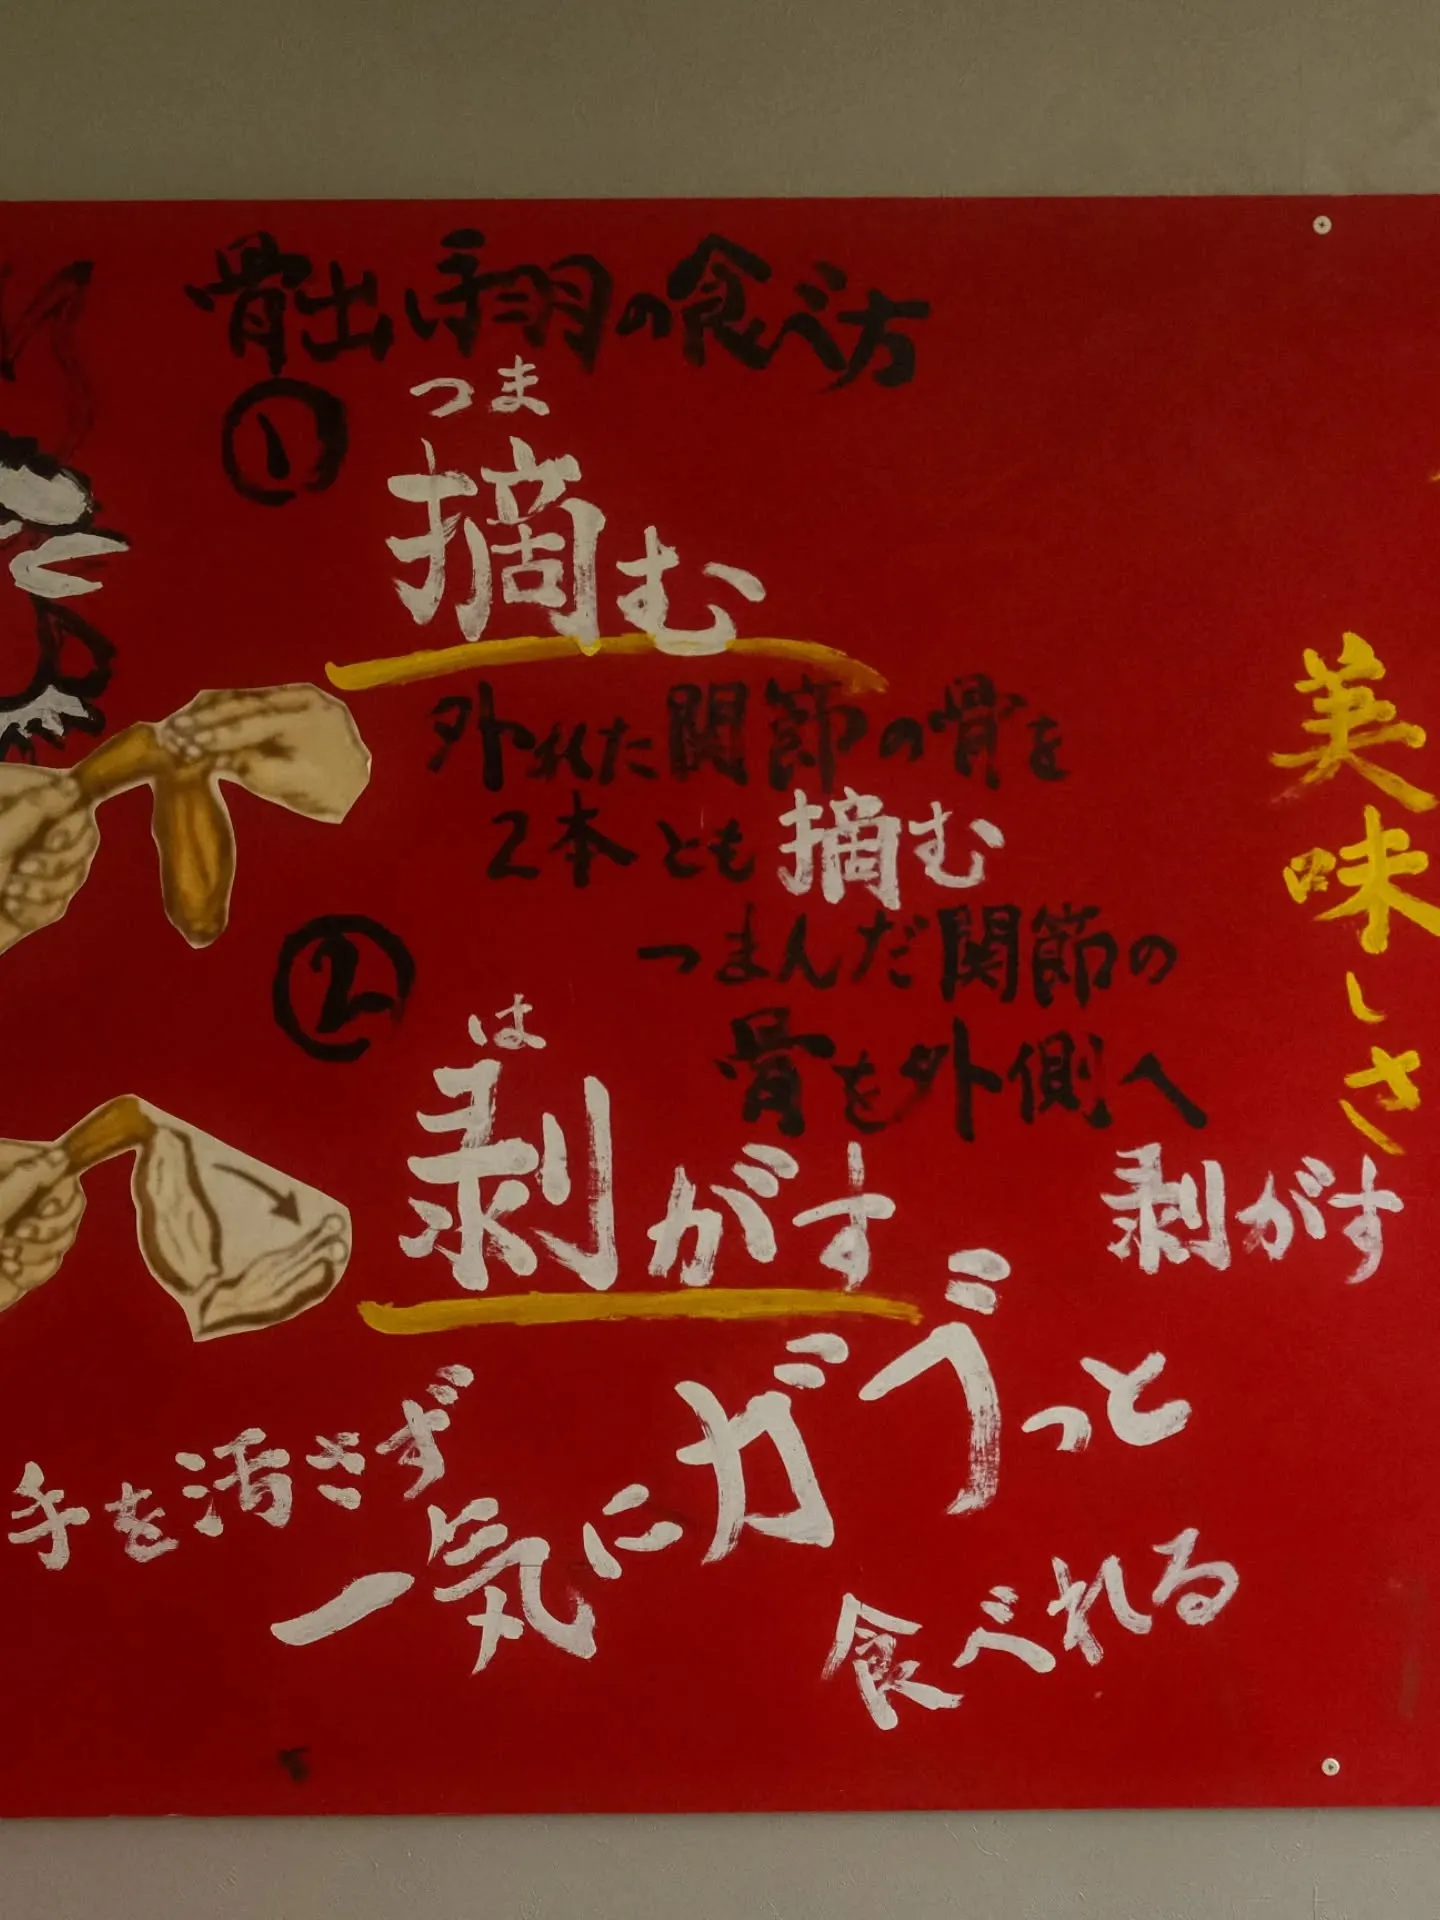 骨出し手羽の食べ方
①
つま
摘む
外れた関節の骨を
2本とも摘む
②
つまんだ関節の
骨を外側へ
は
剥がす
剥がす
手を汚さず
一気にガブっと
食べれる
美味しさ